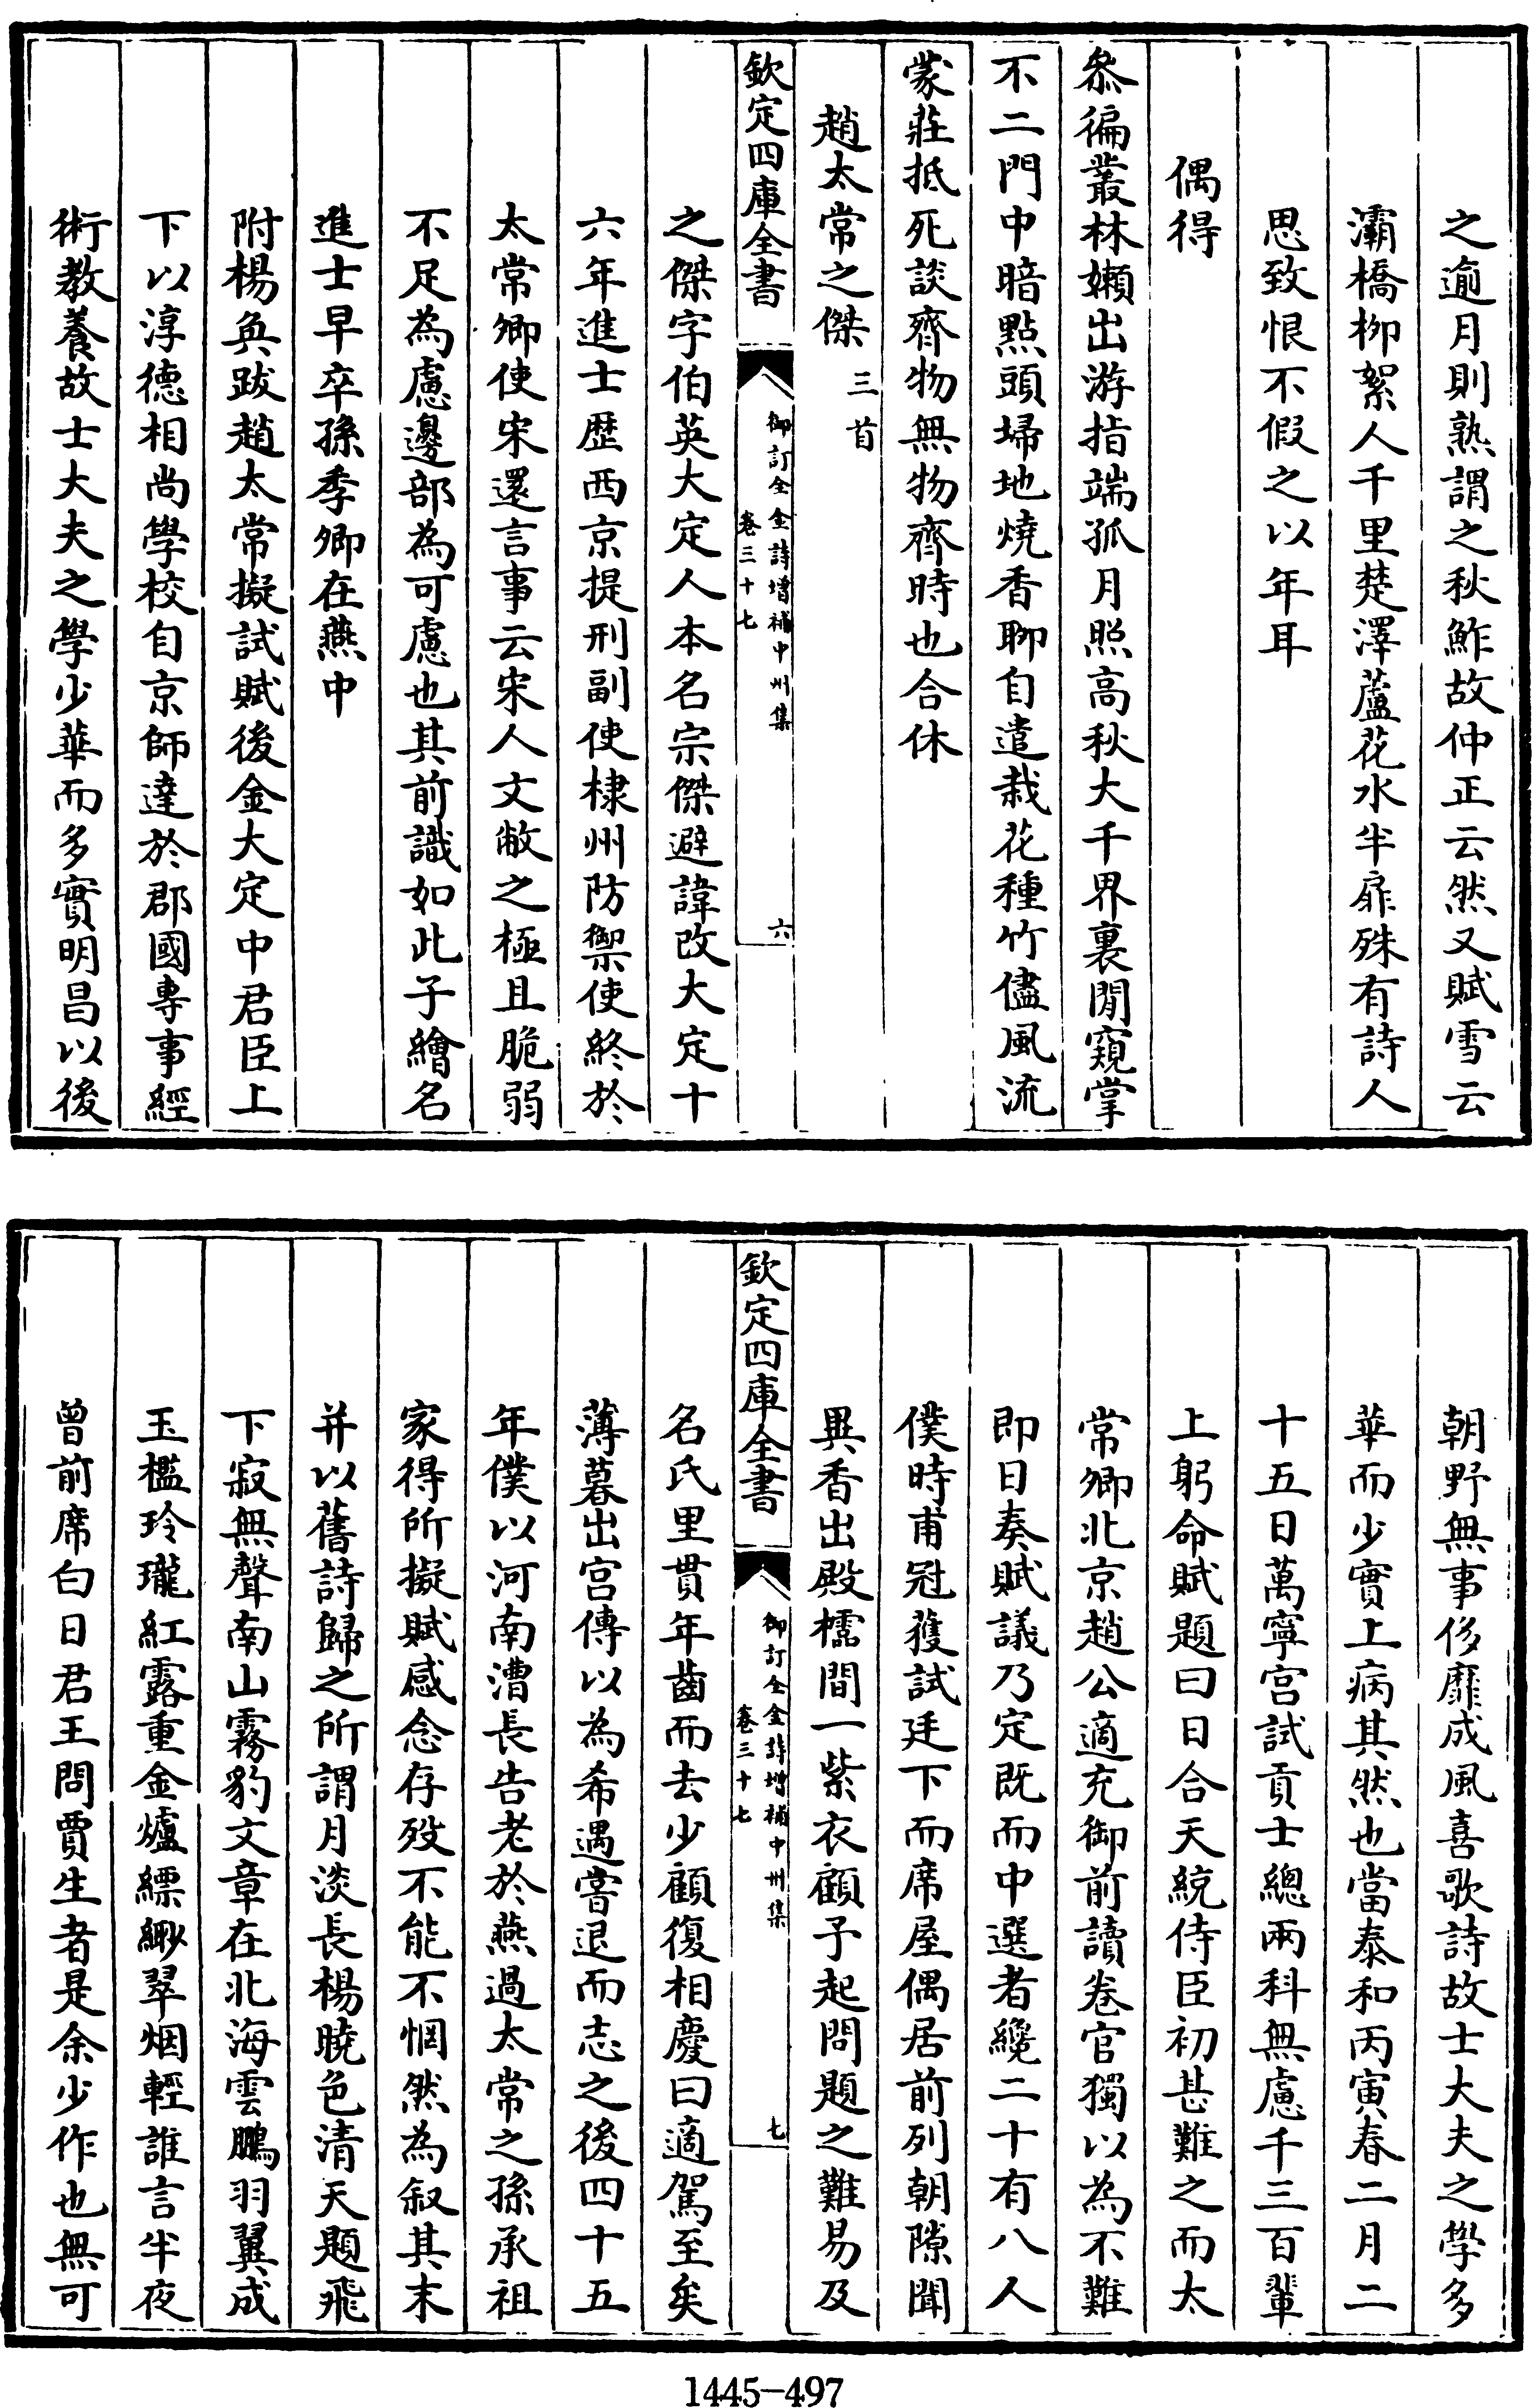 之逾月則熟謂之秋鮓故仲正云然又賦雪云
灞橋柳絮人千里楚澤蘆花水半扉殊有詩人
思致恨不假之以年耳
偶得
叅徧叢林嬾出游指端孤月照高秋大千界裏閒窺掌
不二門中暗點頭埽地燒香聊自遣栽花種竹儘風流
蒙莊抵死談齊物無物齊時也合休
趙太常之傑 三首
欽定四庫全書 御訂全金詩增補中州集 卷三十七 六
之傑字伯英大定人本名宗傑避諱改大定十
六年進士歴西京提刑副使棣州防禦使終於
太常卿使宋還言事云宋人文敝之極且脆弱
不足為慮邊部為可慮也其前識如此子繪名
進士早卒孫季卿在燕中
附楊奐跋趙太常擬試賦後金大定中君臣上
下以淳德相尚學校自京師達於郡國專事經
術教養故士大夫之學少華而多實明昌以後
朝野無事侈靡成風喜歌詩故士大夫之學多
華而少實上病其然也當泰和丙寅春二月二
十五日萬寧宮試貢士總兩科無慮千三百輩
上躬命賦題曰日合天統侍臣初甚難之而太
常卿北京趙公適充御前讀卷官獨以為不難
即日奏賦議乃定既而中選者纔二十有八人
僕時甫冠獲試廷下而席屋偶居前列朝隙聞
異香出殿櫺間一紫衣顧予起問題之難易及
欽定四庫全書 御訂全金詩增補中州集 卷三十七 七
名氏里貫年齒而去少顧復相慶曰適駕至矣
薄暮出宮傳以為希遇嘗退而志之後四十五
年僕以河南漕長告老於燕過太常之孫承祖
家得所擬賦感念存歿不能不惘然為叙其末
并以舊詩歸之所謂月淡長楊曉色清天題飛
下寂無聲南山霧豹文章在北海雲鵬羽翼成
玉檻玲瓏紅露重金爐縹緲翠烟輕誰言半夜
曾前席白日君王問賈生者是余少作也無可
1445-497